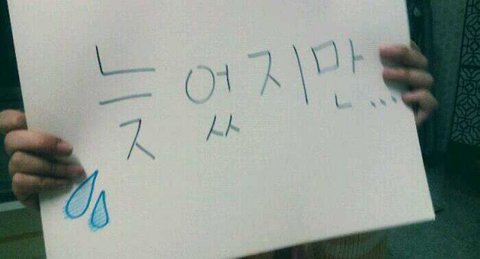 늦었지만...